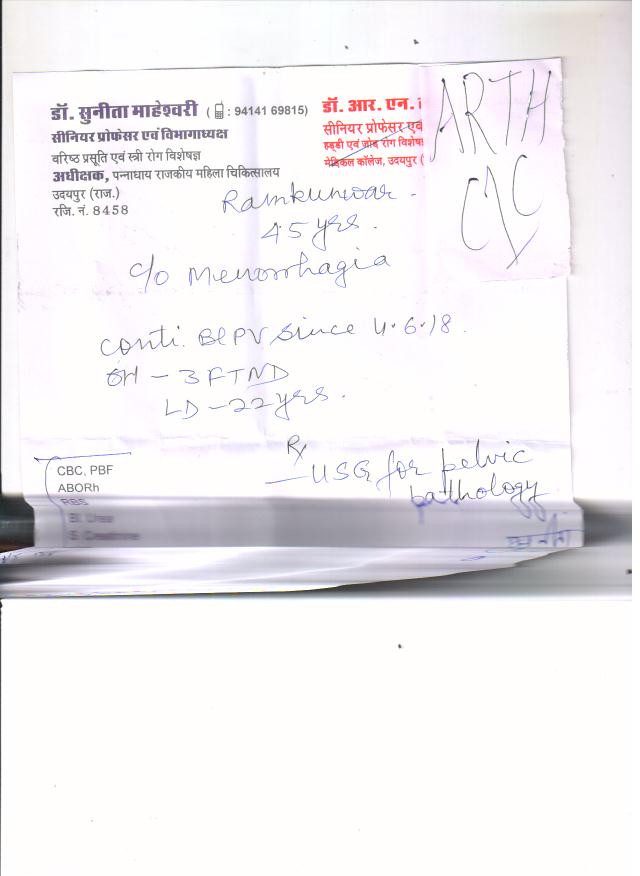 डॉ. सुनीता माहेश्वरी ( : 94141 69815)
सीनियर प्रोफेसर एवं विभागाध्यक्ष
वरिष्ठ प्रसूति एवं स्त्री रोग विशेषज्ञ
अधीक्षक, पन्नाधाय राजकीय महिला चिकित्सालय
उदयपुर (राज.)
रजि. नं. 8458
डॉ. आर. एन.
सीनियर प्रोफेसर एवं
हड्डी एवं जोड़ रोग
मेडिकल कॉलेज, उदयपुर (
ARTH
Ramkunwar.
45 yrs.
c/o Menorrhagia
conti. Bl PV since 4.6.18.
OH - 3 FTND
LD - 22 yrs.
Rx
- USG for pelvic
pathology
CBC, PBF
ABORh
RBS
Bl. Urea
S. Creatinine